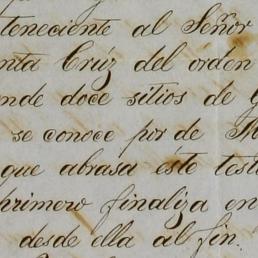 teneciente al Señor
nta Crúz del orden
nde doce sitios de G
se conoce por de Th
que abrasa éste test
primero finaliza en
desde ella al fin.